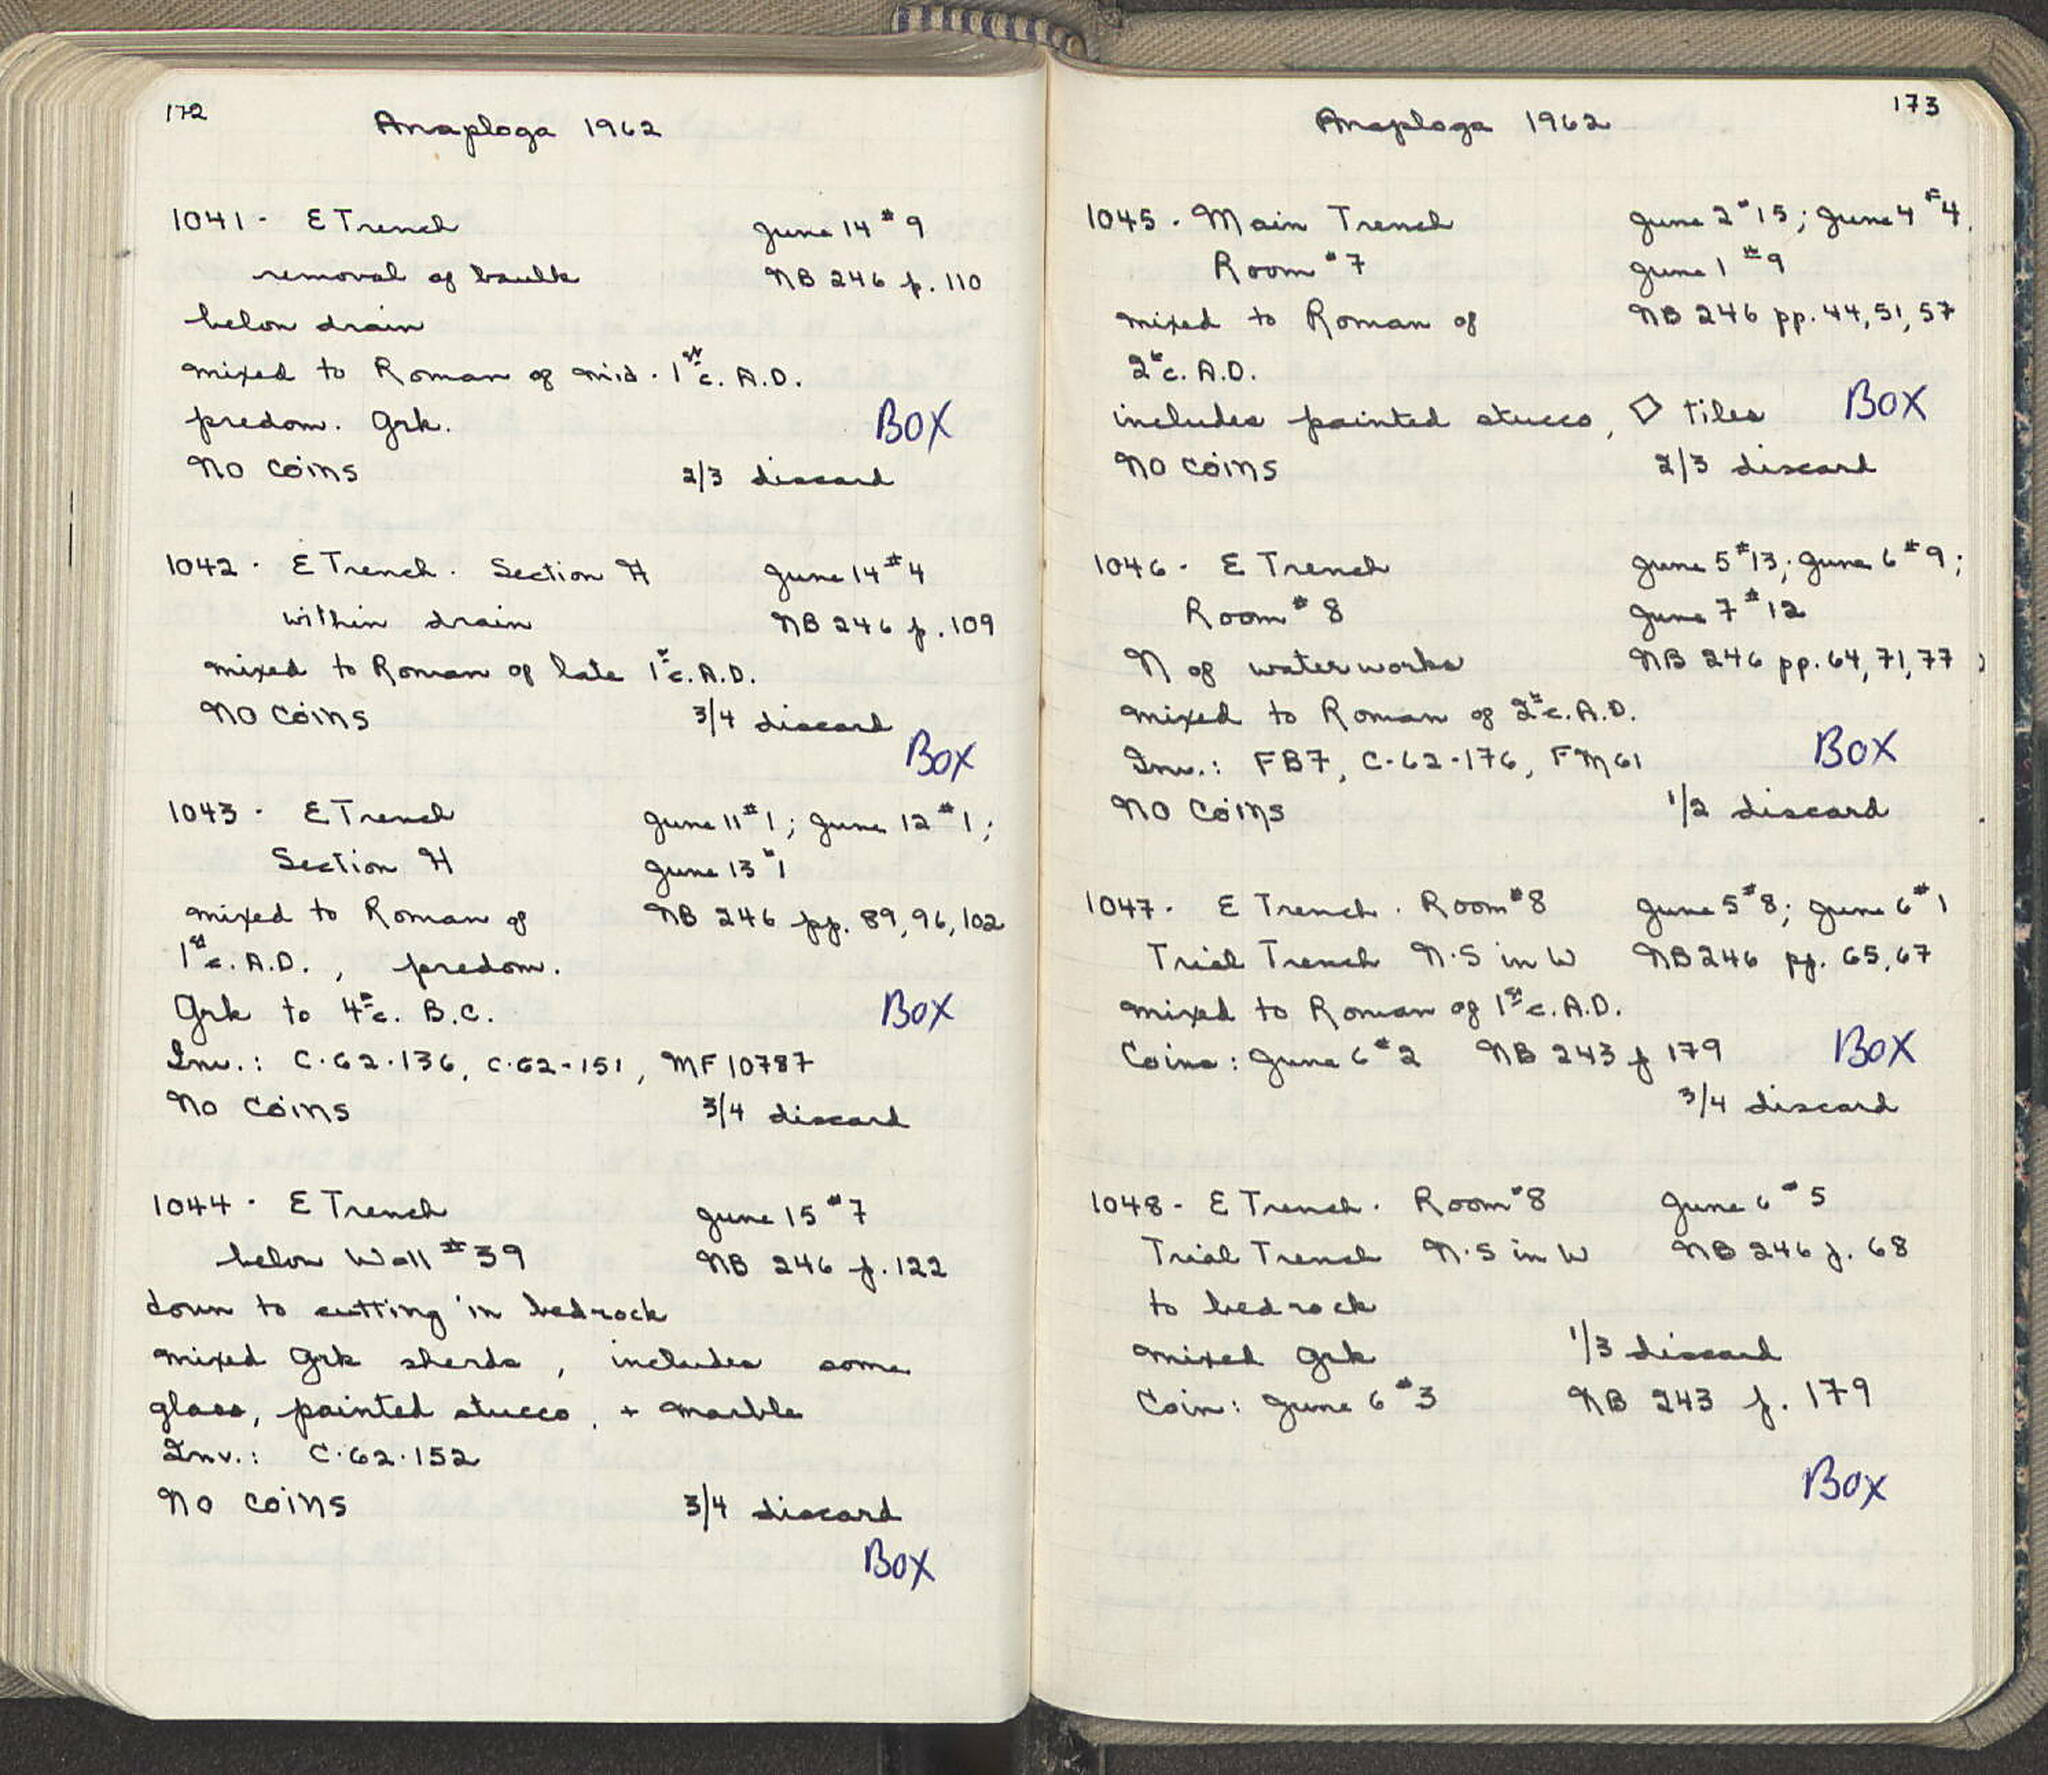 172
Anaploga 1962
1041 - E Trench June 14 #9
removal of baulk NB 246 p. 110
below drain
mixed to Roman of mid. 1st c. A.D.
predom. Grk. BOX
No coins 2/3 discard
1042 - E Trench. Section H June 14 #4
within drain NB 246 p. 109
mixed to Roman of late 1st c. A.D.
No coins 3/4 discard
BOX
1043 - E Trench June 11 #1; June 12 #1;
Section H June 13 #1
mixed to Roman of NB 246 pp. 89, 96, 102
1st c. A.D., predom.
Grk to 4th c. B.C. BOX
Inv.: C-62-136, C-62-151, MF 10787
No coins 3/4 discard
1044 - E Trench June 15 #7
below Wall #39 NB 246 p. 122
down to cutting in bedrock
mixed Grk sherds, includes some
glass, painted stucco, + marble
Inv.: C-62-152
No coins 3/4 discard
BOX
173
Anaploga 1962
1045 - Main Trench June 2 #15; June 4 #4,
Room #7 June 1 #9
mixed to Roman of NB 246 pp. 44, 51, 57
2nd c. A.D.
includes painted stucco, ◇ tiles BOX
No coins 2/3 discard
1046 - E Trench June 5 #13; June 6 #9;
Room #8 June 7 #12
N of waterworks NB 246 pp. 64, 71, 77
mixed to Roman of 2nd c. A.D.
Inv.: FB7, C-62-176, FM61 BOX
No coins 1/2 discard
1047 - E Trench. Room #8 June 5 #8; June 6 #1
Trial Trench N-S in W NB 246 pp. 65, 67
mixed to Roman of 1st c. A.D.
Coins: June 6 #2 NB 243 p 179 BOX
3/4 discard
1048 - E Trench. Room #8 June 6 #5
Trial Trench N-S in W NB 246 p. 68
to bedrock
mixed Grk 1/3 discard
Coin: June 6 #3 NB 243 p. 179
BOX